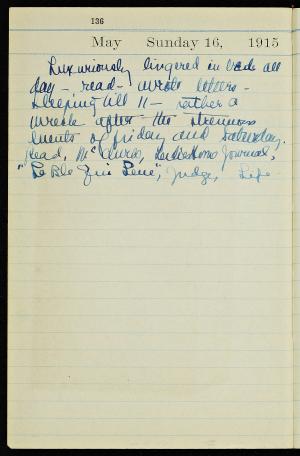 136
May Sunday 16, 1915
Luxuriously lingered in bed all
day - read - wrote letters -
sleeping till 11 - rather a
wreck after the strenuos
ments of friday and Saturday.
Read, McClures, Ladies Home Journal,
"Le Ble Qui Leve", Judge, Life